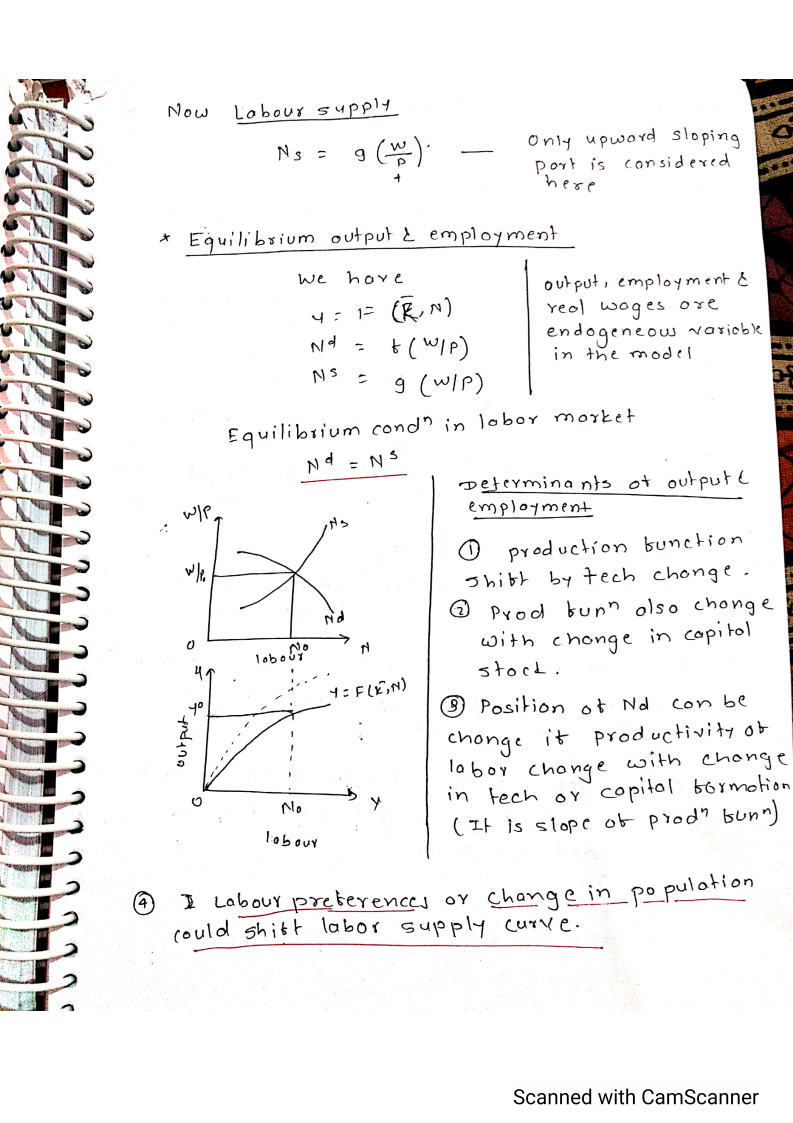 Now Labour supply
Ns = g (W/P) — Only upward sloping
+
part is considered
here
* Equilibrium output & employment
We have
y = F (K̄, N)
Nᵈ = f (W/P)
Nˢ = g (W/P)
output, employment &
real wages are
endogeneous variable
in the model
Equilibrium condⁿ in labor market
Nᵈ = Nˢ
∴ W/P
Ns
W/P₀
Nd
O
N₀
N
labour
y
Y = F(K̄,N)
y₀
output
O
N₀
Y
labour
Determinants of output &
employment
① production function
shift by tech change.
② Prod funⁿ also change
with change in capital
stock.
③ Position of Nd can be
change if productivity of
labor change with change
in tech or capital formation
(It is slope of prodⁿ funⁿ)
④ Labour preferences or change in population
could shift labor supply curve.
Scanned with CamScanner